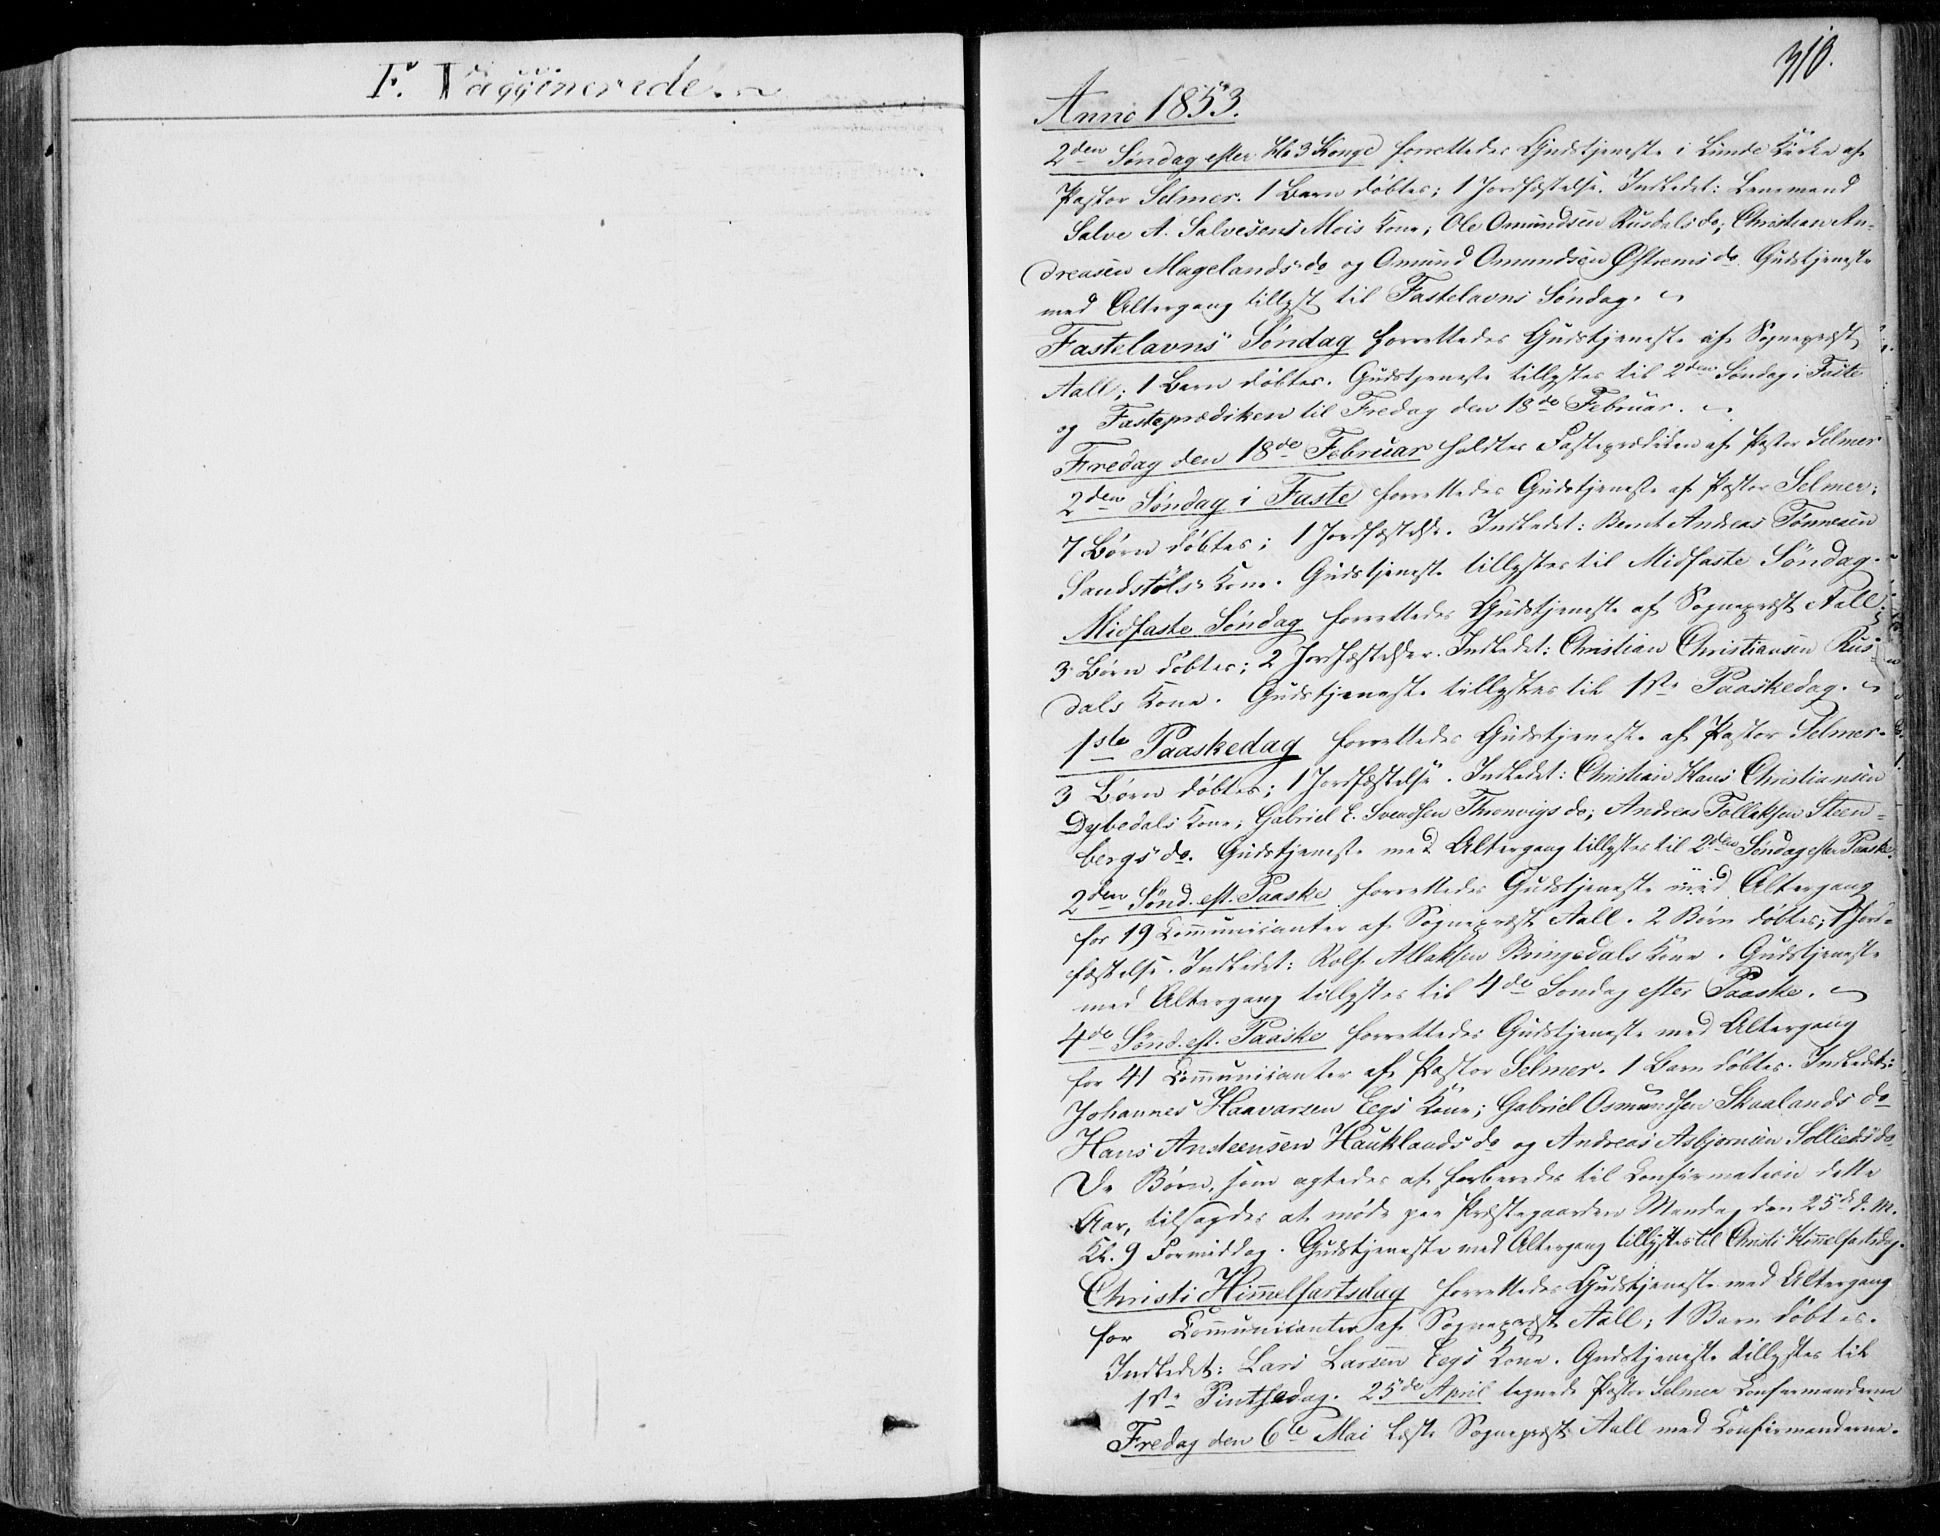 F. Vaggincrede.
310.
Anno 1853.
2den Søndag efter Hl. 3 Konge forrettedes Gudstjeneste i Lunde Kirke af
Pastor Selmer. 1 Barn døbtes; 1 Jordfæstelse. Indledet: Lensmand
Salve A. Salvesens Mois Kone; Ole Omundsen Rusdals do; Christian An-
dreasen Magelands do og Omund Omundsen Østrems do. Gudstjeneste
med Altergang tillyst til Fastelavns Søndag.
Fastelavns Søndag forrettedes Gudstjeneste af Sognepræst
Aall; 1 Barn døbtes. Gudstjeneste tillystes til 2den Søndag i Faste
og Fasteprædiken til Fredag den 18de Februar.
Fredag den 18de Februar holdtes Fasteprædiken af Pastor Selmer
2den Søndag i Faste forrettedes Gudstjeneste af Pastor Selmer;
7 Børn døbtes; 1 Jordfæstelse. Indledet: Bernt Andreas Tønnesen
Sandstøls Kone. Gudstjeneste tillystes til Midfaste Søndag.
Midfaste Søndag forrettedes Gudstjeneste af Sognepræst Aall;
3 Børn døbtes; 2 Jordfæstelser. Indledet: Christian Christiansen Rus-
dals Kone. Gudstjeneste tillystes til 1ste Paaskedag.
1ste Paaskedag forrettedes Gudstjeneste af Pastor Selmer.
3 Børn døbtes; 1 Jordfæstelse. Indledet: Christian Hans Christiansen
Dybedals Kone; Gabriel E. Svendsen Thronvigs do; Andreas Tollaksen Steen-
bergs do. Gudstjeneste med Altergang tillystes til 2den Søndag efter Paaske.
2den Sønd. eft. Paaske forrettedes Gudstjeneste med Altergang
for 19 Communicanter af Sognepræst Aall. 2 Børn døbtes; 1 Jord-
fæstelse. Indledet: Rolf Atlaksen Bringedals Kone. Gudstjeneste
med Altergang tillystes til 4de Søndag efter Paaske.
4de Sønd. eft. Paaske forrettedes Gudstjeneste med Altergang
for 41 Communicanter af Pastor Selmer. 1 Barn døbtes. Indledet:
Johannes Haavarsen Eegs Kone; Gabriel Osmundsen Skaalands do
Hans Ansteensen Hauklands do og Andreas Asbjørnsen Sollieds do
De Børn, som agtedes at forberedes til Confirmation dette
Aar, tilsagdes at møde paa Præstegaarden Mandag den 25de d. M.
Kl. 9 Formiddag. Gudstjeneste med Altergang tillystes til Christi Himmelfartsdag.
Christi Himmelfartsdag forrettedes Gudstjeneste med Altergang
for Communicanter af Sognepræst Aall; 1 Barn døbtes.
Indledet: Lars Larsen Eegs Kone. Gudstjeneste tillystes til
1ste Pintsedag. 25de April tegnede Pastor Selmer Confirmanderne
Fredag den 6te Mai læste Sognepræst Aall med Confirmanderne.